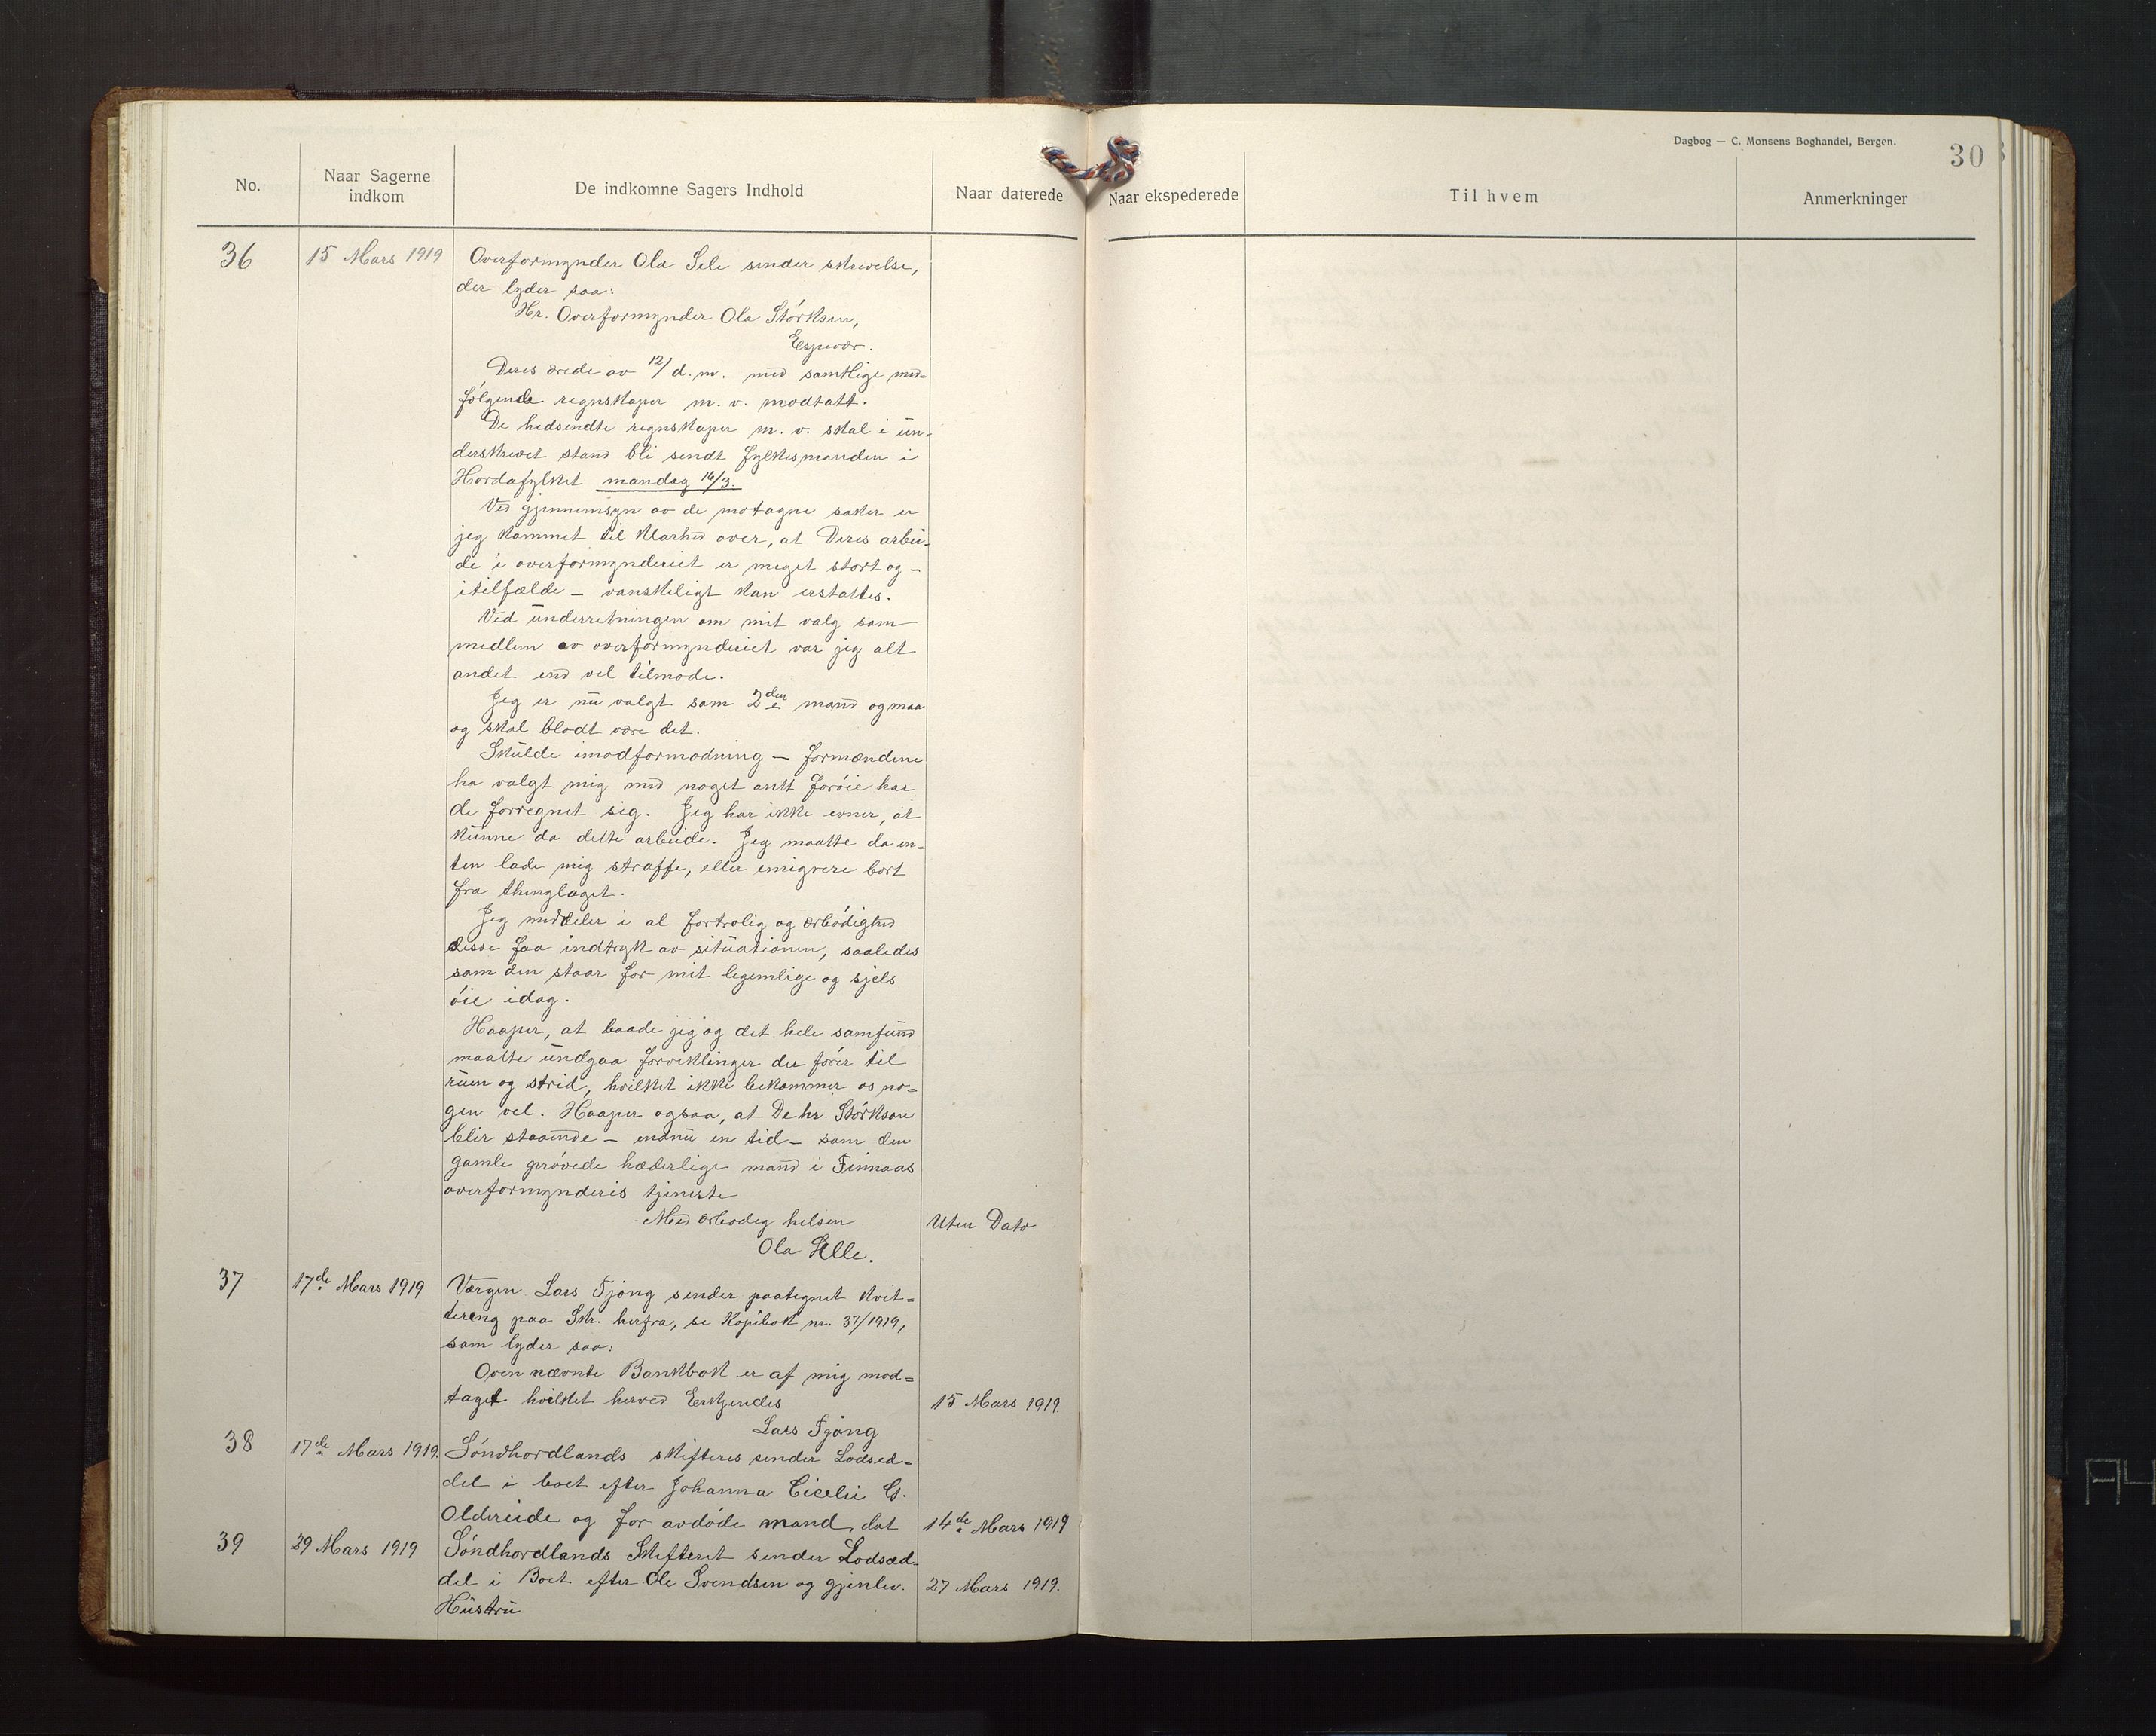 Dagbog — C. Monsens Boghandel, Bergen.
30
No.
Naar Sagerne
indkom
De indkomne Sagers Indhold
Naar daterede
Naar ekspederede
Til hvem
Anmerkninger
36 15 Mars 1919 Overformynder Ola Sele sender skrivelse,
der lyder saa:
Hr. Overformynder Ola Størksen,
Espevær.
Deres ærede av 12/ d. m. med samtlige med=
følgende regnskaper m. v. modtatt.
De hedsendte regnskaper m. v. skal i un=
derskrevet stand bli sendt fylkesmanden i
Hordafylket mandag 16/3.
Ved gjennemsyn av de motagne saker er
jeg kommet til klarhed over, at Deres arbei=
de i overformynderiet er meget stort og –
itilfælde – vanskeligt kan erstattes.
Ved underretningen om mit valg som
medlem av overformynderiet var jeg alt
andet end vel tilmode.
Jeg er nu valgt som 2den mand og maa
og skal blodt være det.
Skulde imodformodning – formændene
ha valgt mig med noget antt forøie har
de forregnet sig. Jeg har ikke evner, at
kunne da dette arbeide. Jeg maatte da en=
ten lade mig straffe, eller emigrere bort
fra thinglaget.
Jeg meddeler i al fortrolig og ærbødighed
disse faa indtryk av situationen, saaledes
som den staar for mit legemlige og sjels
øie idag.
Haaper, at baade jeg og det hele samfund
maatte undgaa forviklinger der fører til
ruin og strid, hvilket ikke bekommer os no=
gen vel. Haaper ogsaa, at De hr. Størksen
blir staaende – endnu en tid – som den
gamle prøvede hæderlige mand i Finnaas
overformynderis tjeneste
Med ærbødig helsen Uten Dato
Ola Selle.
37 17de Mars 1919 Værgen Lars Fjøng sender paategnet kvit=
tering paa Skr. herfra, se Kopibok nr. 37/1919,
som lyder saa:
Oven nævnte Bankbok er af mig mod=
taget hvilket herved Erkjendes 15 Mars 1919.
Lars Fjøng
38 17de Mars 1919. Søndhordlands skifteret sender Lodsed=
del i boet efter Johanna Cicelie G.
Oldereide og før avdøde mand, dat 14de Mars 1919
39 29 Mars 1919 Søndhordlands Skifteret sender Lodsæd=
del i Boet efter Ole Svendsen og gjenlev. 27 Mars 1919.
Hustru